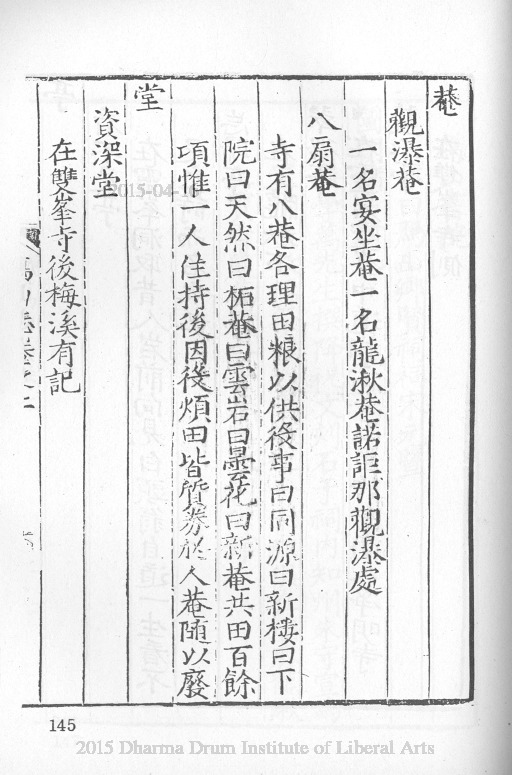 菴
觀瀑菴
一名宴坐菴一名龍湫菴諾詎那觀瀑處
八扇菴
寺有八菴各理田粮以供役事曰同源曰新樓曰下
院曰天然曰柘菴曰雲岩曰曇花曰新菴共田百餘
項惟一人住持後因役煩田皆質劵於人菴随以廢
堂
資深堂
在雙峯寺後梅溪有記
山志卷之二
2015-04-16
145
2015 Dharma Drum Institute of Liberal Arts